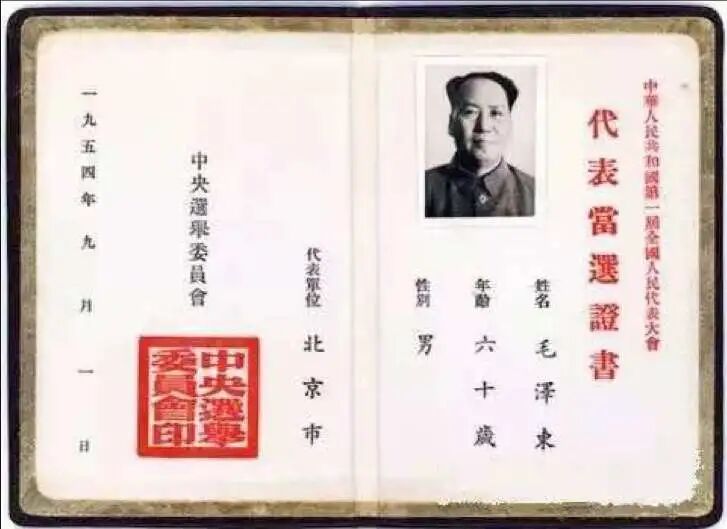 中華人民共和國第一屆全國人民代表大會
代表當選證書
姓名 毛澤東
年齡 六十歲
性別 男
代表單位 北京市
中央選舉委員會
中央選舉
委員會印
一九五四年九月一日